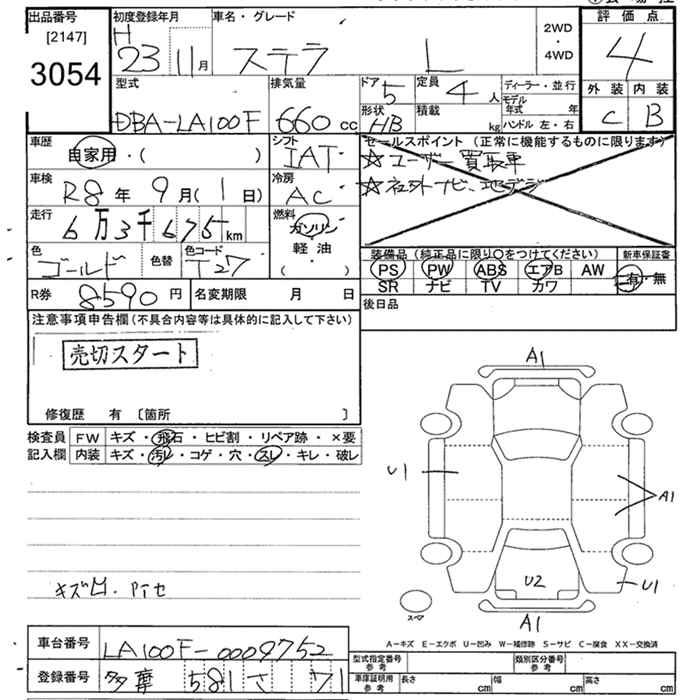 出品番号 初度登録年月 車名・グレード 2WD ・ 4WD 評価点
[2147] H 23 11月 ステラ L 4
3054
型式 排気量 ドア 5 定員 4人 ディーラー・並行 外装 内装
DBA-LA100F 660cc 形状 HB 積載 kg モデル年式 年 C B
ハンドル 左・右
車歴 自家用・( ) シフト IAT セールスポイント (正常に機能するものに限ります)
☆ユーザー買取車
車検 R8年 9月(1日) 冷房 AC ☆社外ナビ、
走行 6万3千675km 燃料 ガソリン 軽・油 ( )
色 ゴールド 色替 色コード T27
装備品 (純正品に限り〇をつけてください) 新車保証書
PS PW ABS エアB AW 有・無
SR ナビ TV カワ
R券 8590円 名変期限 月 日 後日品
注意事項申告欄 (不具合内容等は具体的に記入して下さい)
売切スタート
修復歴 有 [箇所 ]
検査員 FW キズ・飛石・ヒビ割・リペア跡・×要
記入欄 内装 キズ・汚レ・コゲ・穴・スレ・キレ・破レ
A1
U1
A1
U2
U1
A1
スペア
キズ凹.
A-キズ E-エクボ U-凹み W-補修跡 S-サビ C-腐食 XX-交換済
車台番号 LA100F-0009752
登録番号 多摩 581 さ 71
型式指定番号 参考 類別区分番号 参考
車庫証明用 参考 長さ cm 幅 cm 高さ cm